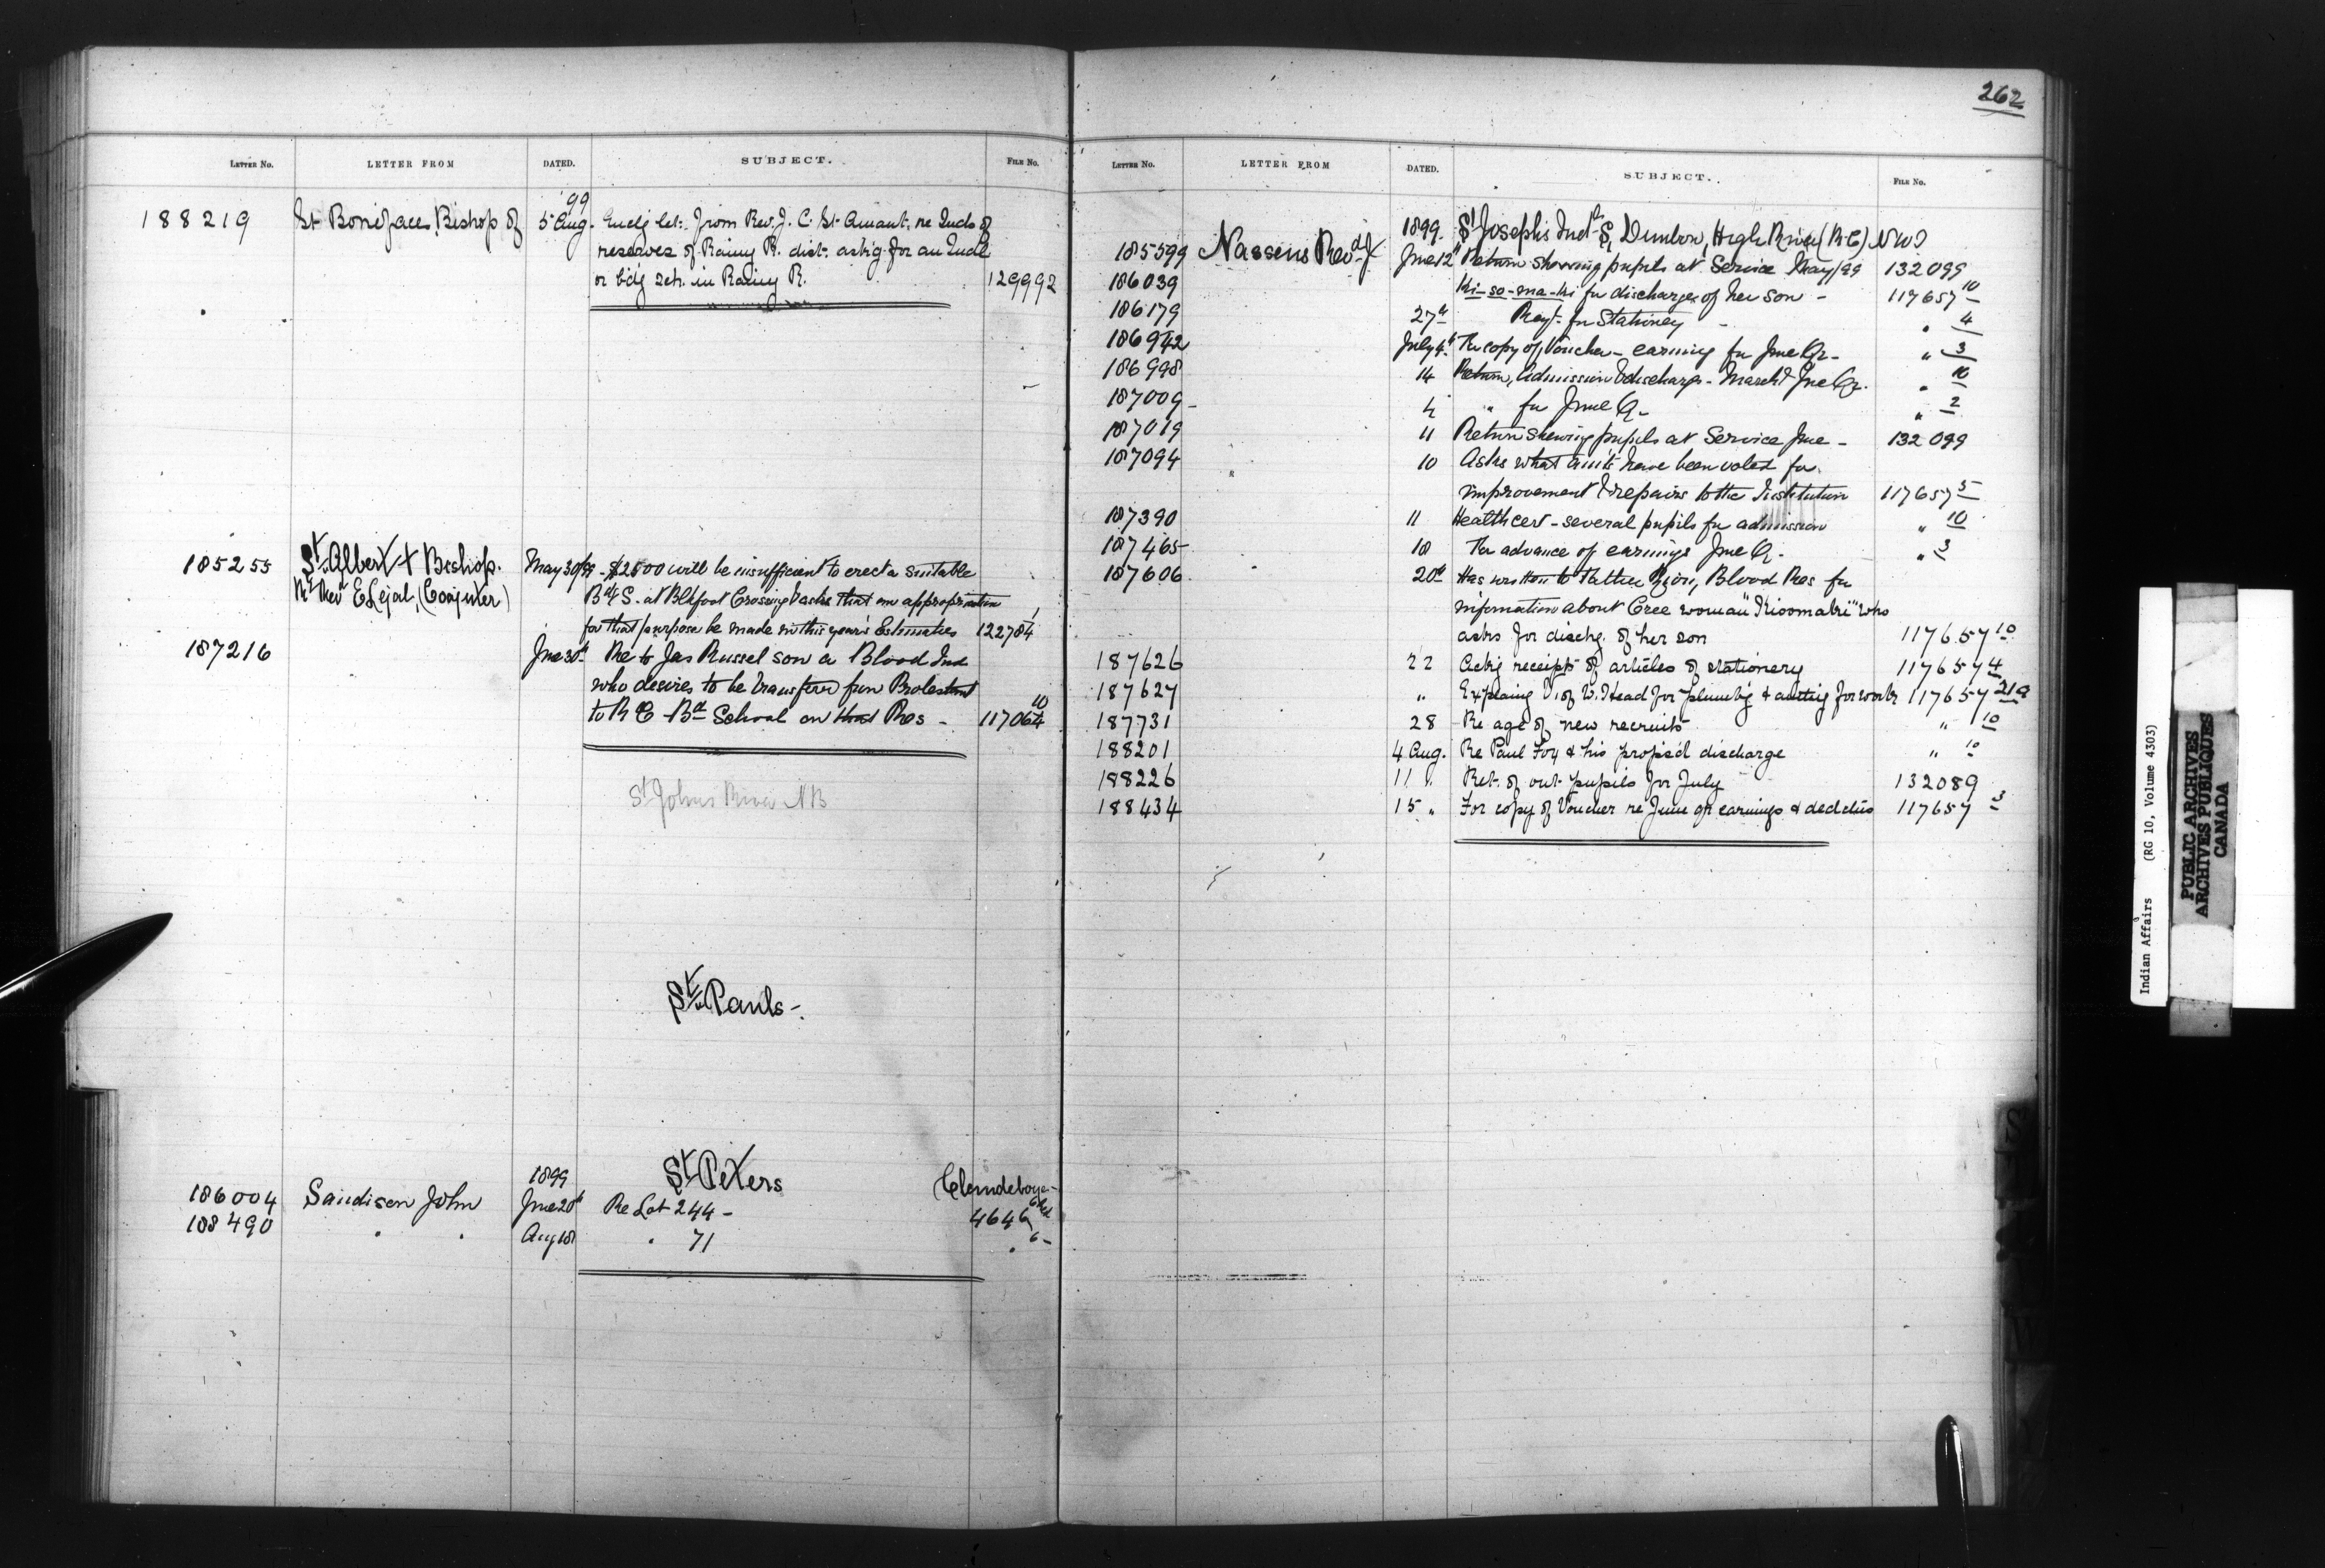 262
LETTER NO. LETTER FROM DATED. SUBJECT. FILE NO.
'99
188219 St Boniface, Bishop of 5 Aug. Encl'g let. from Rev. J. C. St. Amant. re Inds of
reserves of Rainy R. dist. ask'g for an Indl
or b'd'g sch. in Rainy R. 129992
185255 St Albert + Bishop. May 30/99 - $2500 will be insufficient to erect a suitable
Rt Revd E Lejal, (Coajuter) Bdg S. at Blkfoot Crossing & asks that an appropriation
for that purpose be made in this year's Estimates 122784
187216 Jne 30th Re to Jas Russel son a Blood Ind
who desires to be transferrd from Protestant
to R C Bdg School on that Res - 117064 10
St Johns River NB
St Pauls -
1899 St Peters Clandeboye -
186004 Sandison John Jne 20th Re Lot 244 - 4646
188490 " " Aug 18 " 71 " 6 -
LETTER NO. LETTER FROM DATED. SUBJECT. FILE NO.
1899. St Josephs Indl S, Dunbow, High River (R.C) NWT
185599 Nassens Revd J June 12th Return showing pupils at Service May/99 132099
186039 Ki-so-ma-ki for discharge of her son - 117657 10
186179 27th Reqt. for Stationery - " 4
186942 July 4th For copy of Voucher - earning for June Qr - " 3
186998 14 Return, Admission & discharge - March & Jne Qr. " 10
187009 - 4 " for June Q - " 2
187019 11 Return shewing pupils at Service Jne - 132099
187094 10 Asks what amts have been voted for
improvement & repairs to the Institution 117657 5
187390 11 Health cert - several pupils for admission " 10
187465 18 For advance of earnings Jne Q - " 3
187606 20th Has written to Father Riou, Blood Res for
information about Cree woman "Kisomakie" who
asks for dischg. of her son 117657 10
187626 22 Ackg receipt of articles of stationery 117657 4
187627 " Explaing V. of W. Head for plumbig & cutting for works 117657 21a
187731 28 Re age of new recruits " 10
188201 4 Aug. Re Paul Fox & his propos'd discharge " 10
188226 11 " Ret. of out pupils for July 132089
188434 15 " For copy of Voucher re June qr earnings & dedctns 117657 3
Indian Affairs (RG 10, Volume 4303)
PUBLIC ARCHIVES
ARCHIVES PUBLIQUES
CANADA